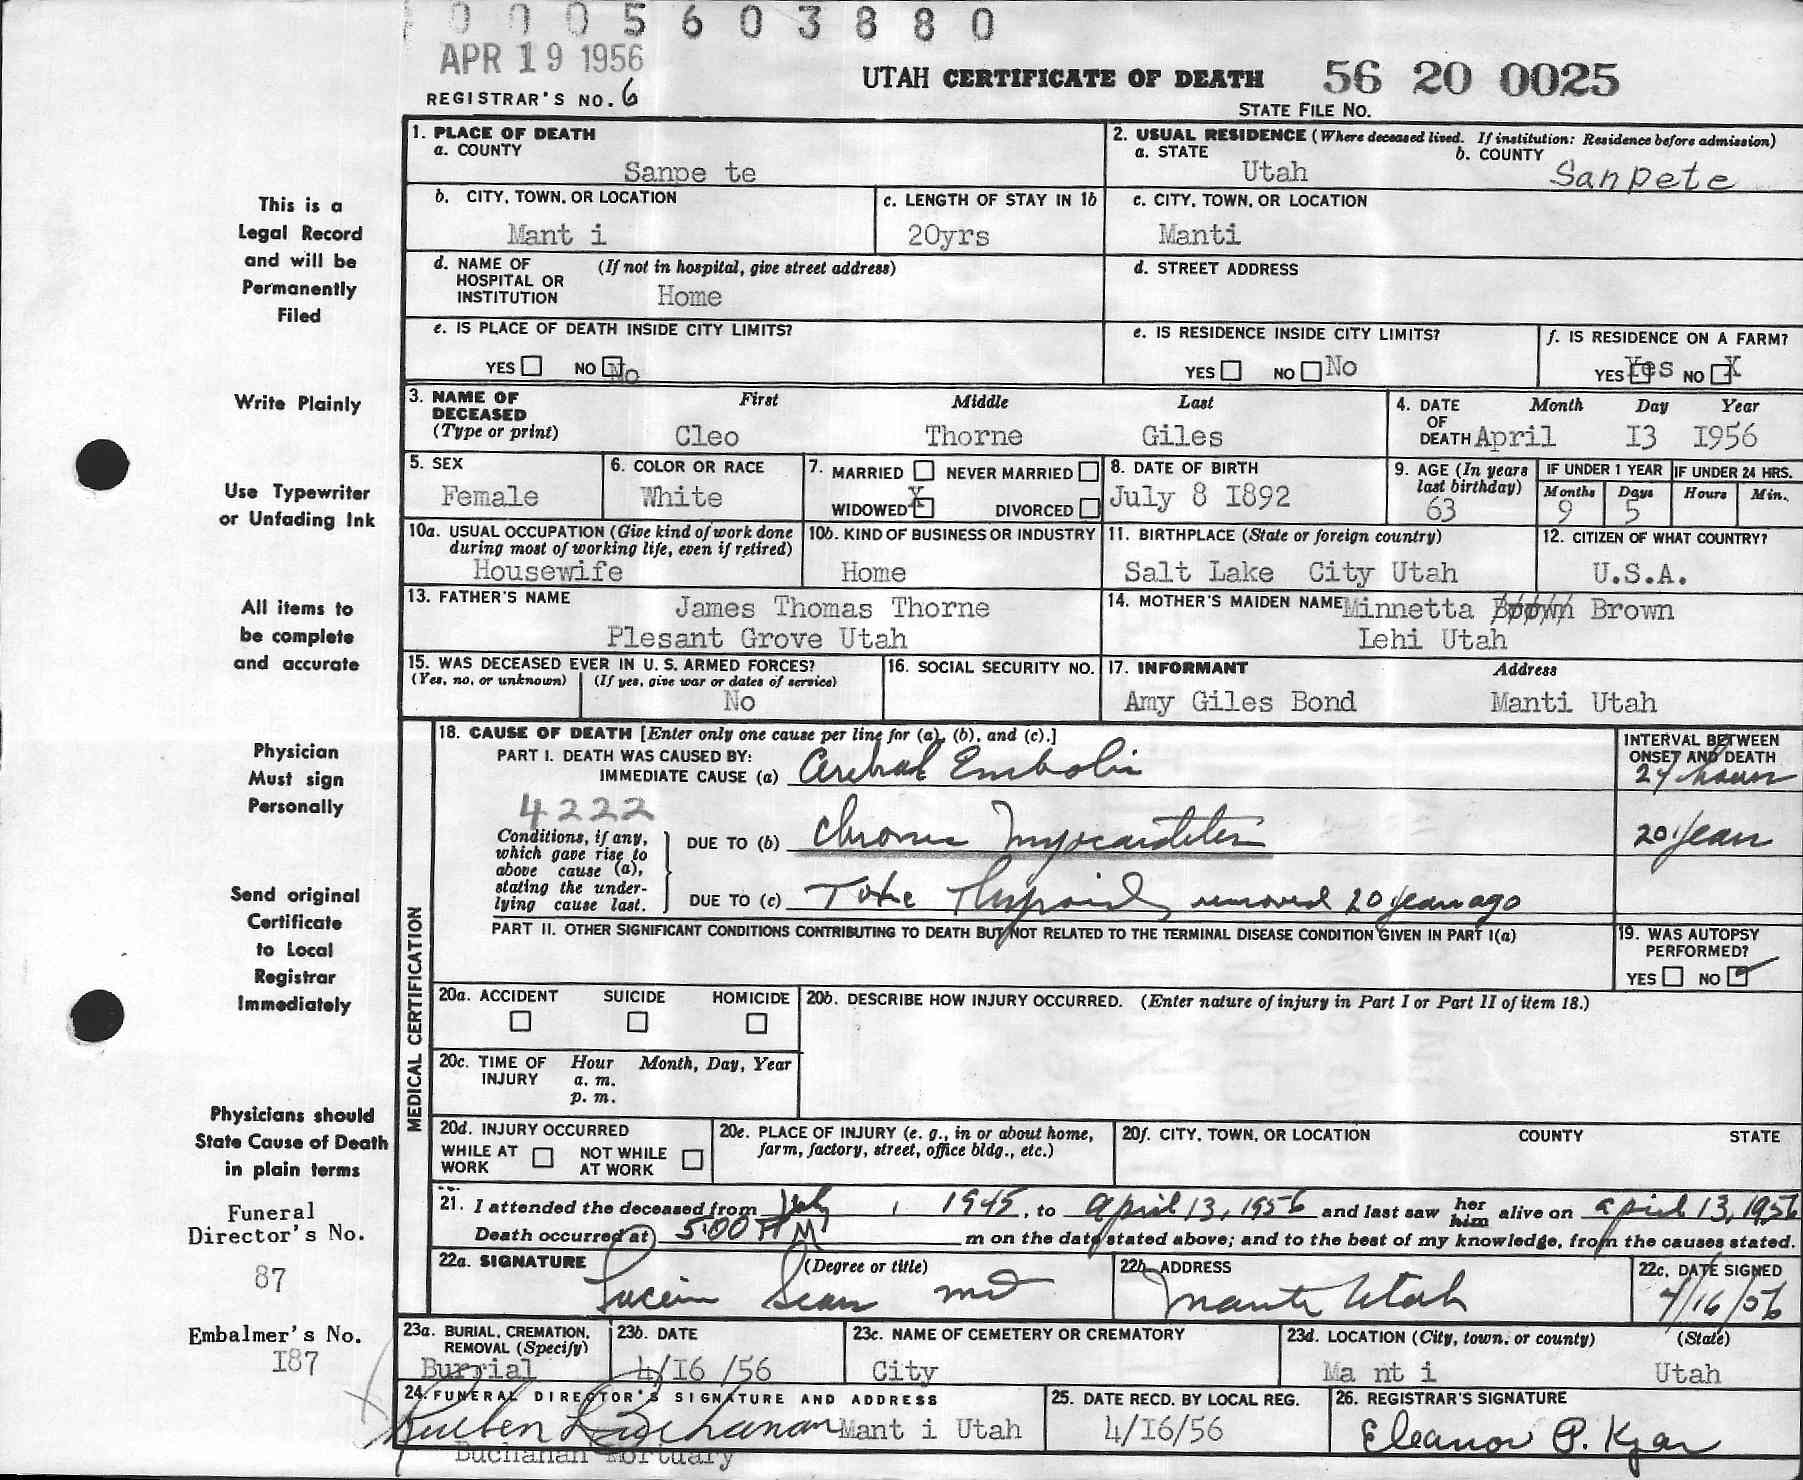 0 0 0 5 6 0 3 8 8 0
APR 19 1956
UTAH CERTIFICATE OF DEATH 56 20 0025
REGISTRAR'S NO. 6
STATE FILE NO.
1. PLACE OF DEATH
a. COUNTY
Sanpe te
2. USUAL RESIDENCE (Where deceased lived. If institution: Residence before admission)
a. STATE b. COUNTY
Utah Sanpete
b. CITY, TOWN, OR LOCATION
Mant i
c. LENGTH OF STAY IN 1b
20yrs
c. CITY, TOWN, OR LOCATION
Manti
d. NAME OF HOSPITAL OR INSTITUTION (If not in hospital, give street address)
Home
d. STREET ADDRESS
e. IS PLACE OF DEATH INSIDE CITY LIMITS?
YES NO No
e. IS RESIDENCE INSIDE CITY LIMITS?
YES NO No
f. IS RESIDENCE ON A FARM?
YES Yes NO X
3. NAME OF DECEASED (Type or print)
First Middle Last
Cleo Thorne Giles
4. DATE OF DEATH Month Day Year
April I3 I956
5. SEX
Female
6. COLOR OR RACE
White
7. MARRIED NEVER MARRIED
WIDOWED X DIVORCED
8. DATE OF BIRTH
July 8 I892
9. AGE (In years last birthday)
63
IF UNDER 1 YEAR IF UNDER 24 HRS.
Months Days Hours Min.
9 5
10a. USUAL OCCUPATION (Give kind of work done during most of working life, even if retired)
Housewife
10b. KIND OF BUSINESS OR INDUSTRY
Home
11. BIRTHPLACE (State or foreign country)
Salt Lake City Utah
12. CITIZEN OF WHAT COUNTRY?
U.S.A.
13. FATHER'S NAME
James Thomas Thorne
Plesant Grove Utah
14. MOTHER'S MAIDEN NAME
Minnetta Brown
Lehi Utah
15. WAS DECEASED EVER IN U. S. ARMED FORCES?
(Yes, no, or unknown) (If yes, give war or dates of service)
No
16. SOCIAL SECURITY NO.
17. INFORMANT Address
Amy Giles Bond Manti Utah
MEDICAL CERTIFICATION
18. CAUSE OF DEATH [Enter only one cause per line for (a), (b), and (c).]
PART I. DEATH WAS CAUSED BY:
IMMEDIATE CAUSE (a) Cerebral Emboli
INTERVAL BETWEEN ONSET AND DEATH
24 hours
4222
Conditions, if any, which gave rise to above cause (a), stating the underlying cause last.
DUE TO (b) Chronic Myocarditis
20 years
DUE TO (c) Toxic Thyroid removed 20 years ago
PART II. OTHER SIGNIFICANT CONDITIONS CONTRIBUTING TO DEATH BUT NOT RELATED TO THE TERMINAL DISEASE CONDITION GIVEN IN PART I(a)
19. WAS AUTOPSY PERFORMED?
YES NO ✓
20a. ACCIDENT SUICIDE HOMICIDE
20b. DESCRIBE HOW INJURY OCCURRED. (Enter nature of injury in Part I or Part II of item 18.)
20c. TIME OF INJURY Hour Month, Day, Year
a. m.
p. m.
20d. INJURY OCCURRED
WHILE AT WORK NOT WHILE AT WORK
20e. PLACE OF INJURY (e. g., in or about home, farm, factory, street, office bldg., etc.)
20f. CITY, TOWN, OR LOCATION COUNTY STATE
21. I attended the deceased from July, 1945, to April 13, 1956 and last saw her him alive on April 13, 1956
Death occurred at 5:00 A M m on the date stated above; and to the best of my knowledge, from the causes stated.
22a. SIGNATURE (Degree or title)
Lucien Sears MD
22b. ADDRESS
Manti Utah
22c. DATE SIGNED
4/16/56
23a. BURIAL, CREMATION, REMOVAL (Specify)
Burrial
23b. DATE
4/I6 /56
23c. NAME OF CEMETERY OR CREMATORY
City
23d. LOCATION (City, town, or county) (State)
Ma nt i Utah
24. FUNERAL DIRECTOR'S SIGNATURE AND ADDRESS
Rueben L Buchanan Mant i Utah
Buchanan Mortuary
25. DATE RECD. BY LOCAL REG.
4/I6/56
26. REGISTRAR'S SIGNATURE
Eleanor P. Kjar
This is a
Legal Record
and will be
Permanently
Filed
Write Plainly
Use Typewriter
or Unfading Ink
All items to
be complete
and accurate
Physician
Must sign
Personally
Send original
Certificate
to Local
Registrar
Immediately
Physicians should
State Cause of Death
in plain terms
Funeral
Director's No.
87
Embalmer's No.
I87